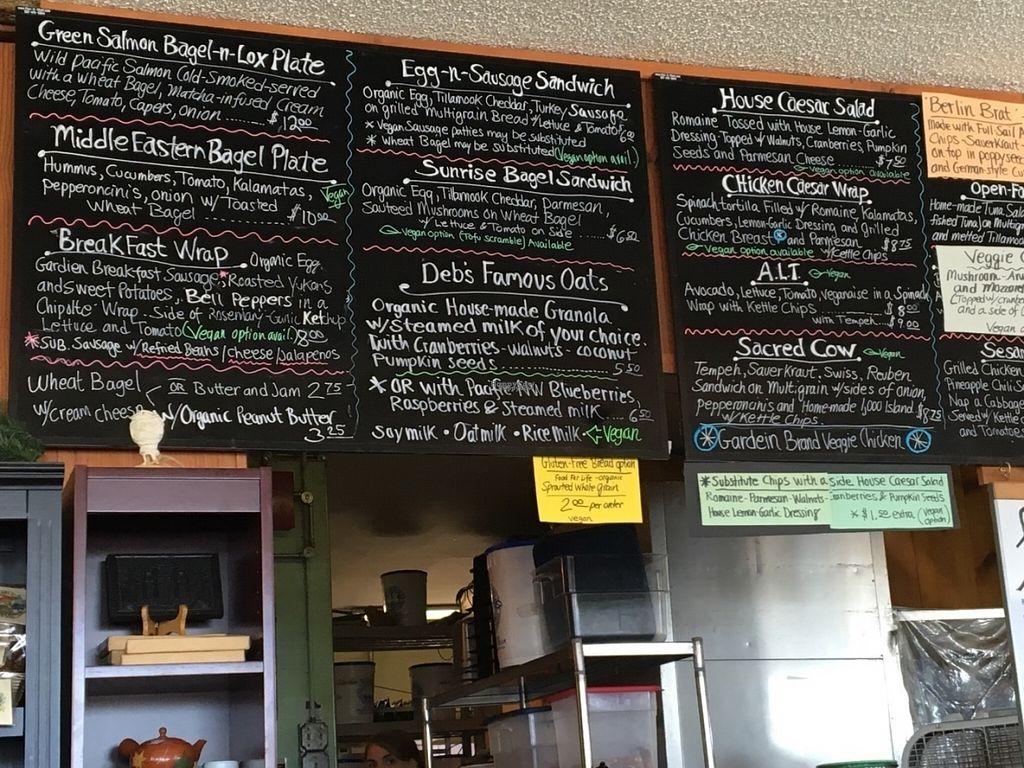 Green Salmon Bagel-n-Lox Plate
Wild Pacific Salmon Cold-Smoked-served
with a Wheat Bagel, Matcha-infused Cream
Cheese, Tomato, Capers, onion $12.00
Middle Eastern Bagel Plate
Hummus, Cucumbers, Tomato, Kalamatas, Vegan
Pepperoncini's, onion w/ Toasted
Wheat Bagel $10.00
BreakFast Wrap Organic Egg,
Gardien Breakfast Sausage,* Roasted Yukons
and Sweet Potatoes, Bell Peppers in a
Chipotle Wrap - Side of Rosemary-Garlic Ketchup
Lettuce and Tomato (Vegan option avail.) 8.00
*SUB. Sausage w/ Refried Beans/cheese/Jalapenos
Wheat Bagel OR Butter and Jam 2.75
w/cream cheese w/Organic Peanut Butter
3.25
Egg-n-Sausage Sandwich
Organic Egg, Tillamook Cheddar, Turkey Sausage
on grilled multigrain Bread w/Lettuce & Tomato 6.00
* Vegan Sausage patties may be substituted
* Wheat Bagel may be substituted (Vegan option avail.)
Sunrise Bagel Sandwich
Organic Egg, Tillamook Cheddar, Parmesan,
Sauteed Mushrooms on Wheat Bagel
w/ Lettuce & Tomato on Side $6.50
Vegan option (Tofu scramble) Available
Deb's Famous Oats
Organic House-made Granola
w/Steamed milk of your choice
with Cranberries - walnuts - coconut
Pumpkin seeds 5.50
* OR with Pacific NW Blueberries,
Raspberries & Steamed milk 6.50
Soymilk • Oatmilk • Rice Milk ⇐ Vegan
House Caesar Salad
Romaine Tossed with House Lemon-Garlic
Dressing-Topped w/ Walnuts, Cranberries, Pumpkin
Seeds and Parmesan Cheese $7.50
Vegan option available
Chicken Caesar Wrap
Spinach tortilla Filled w/ Romaine, Kalamatas,
Cucumbers, Lemon-Garlic Dressing and grilled
Chicken Breast and Parmesan $8.75
Vegan option available w/Kettle Chips
A.L.T. Vegan
Avocado, Lettuce, Tomato, Veganaise in a Spinach
Wrap with Kettle Chips $8.00
with Tempeh $9.00
Sacred Cow Vegan
Tempeh, SauerKraut, Swiss, Reuben
Sandwich on Multigrain w/sides of onion,
Pepperoncinis and Home-made 1,000 Island $8.75
w/ Kettle Chips
Gardein Brand Veggie Chicken
Berlin Brat
Made with Full Sail
Chips - Sauerkraut
on top in poppyseed
and German-style
Open-Fa
Home-made Tuna Sala
fished Tuna) on Multigr
and melted Tillamook
Veggie
Mushroom
and mozzar
(Topped w/
and a side of
Vegan
Sesa
Grilled Chicken
Pineapple Chili S
Napa Cabbage
Served w/ Kettle
and Tomatoes
Gluten-Free Bread option
Food For Life - organic
Sprouted Whole Grain
2.00 per order
vegan
*Substitute Chips with a side House Caesar Salad
Romaine-Parmesan-Walnuts-Cranberries & Pumpkin Seeds
House Lemon-Garlic Dressing * $1.50 extra (Vegan option)